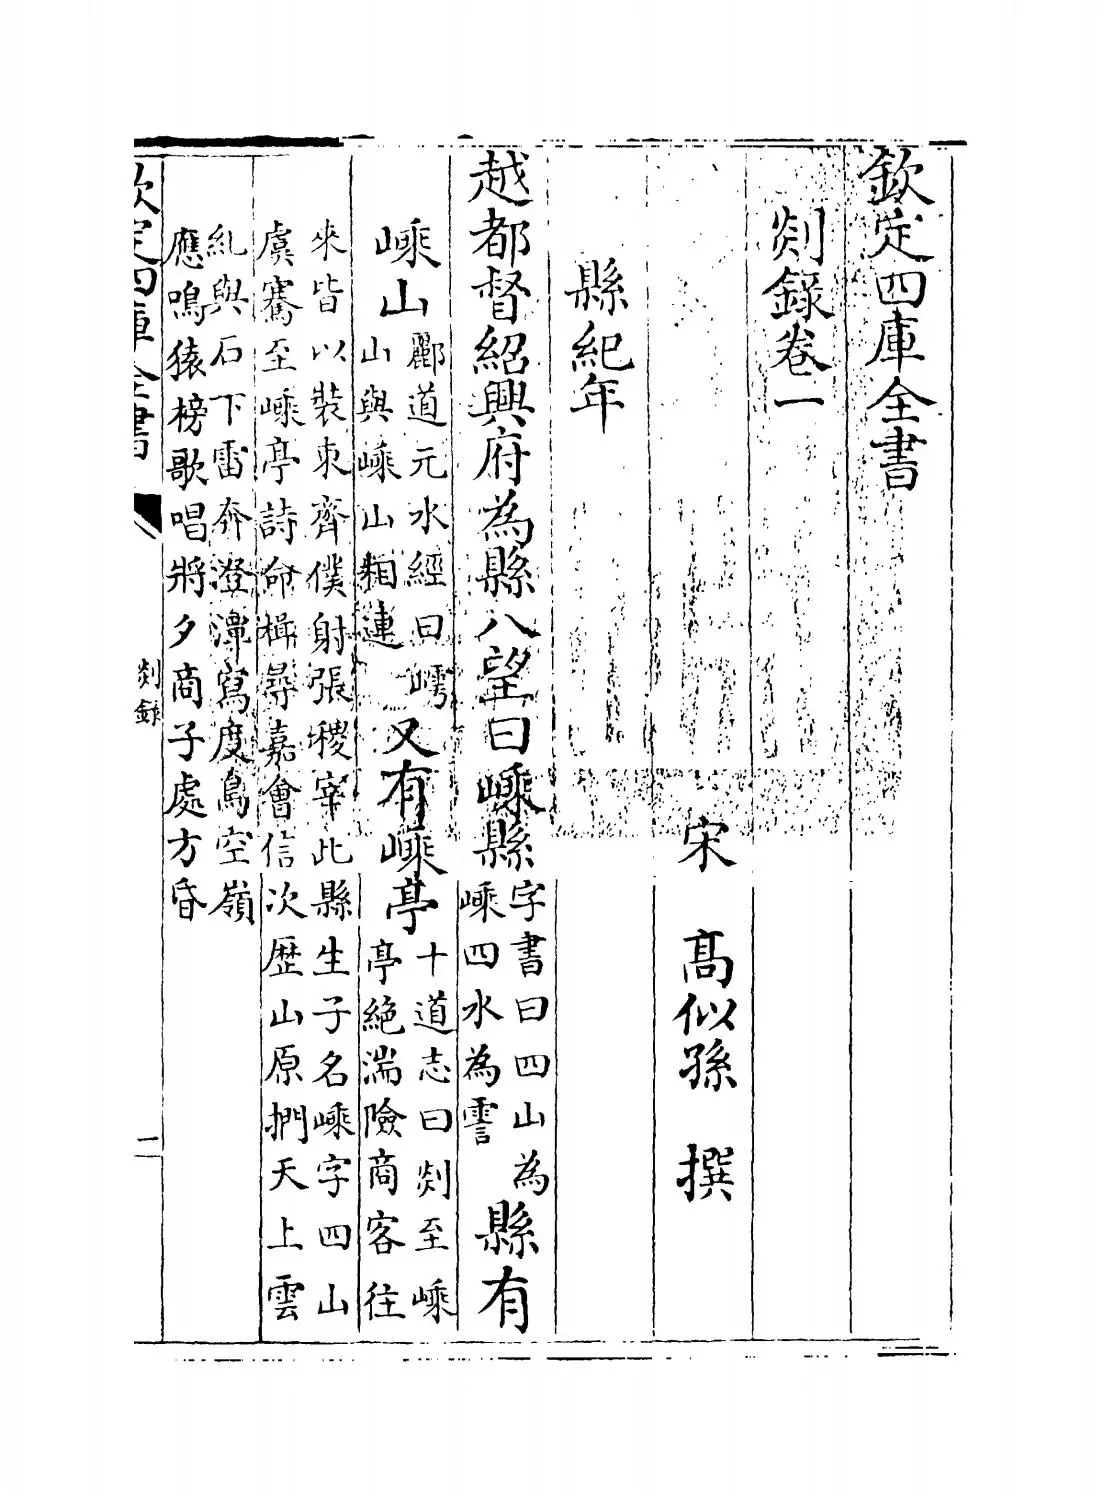 欽定四庫全書
剡録卷一
宋 髙似孫 撰
縣紀年
越都督紹興府為縣八望曰嵊縣
字書曰四山為
嵊四水為
縣有
嵊山
酈道元水經曰嶀
山與嵊山相連
又有嵊亭
十道志曰剡至嵊
亭絶湍險商客往
來皆以裝束齊僕射張稷宰此縣生子名嵊字四山
虞騫至嵊亭詩命楫尋嘉會信次歴山原捫天上雲
糺與石下雷奔澄潭寫度鳥空嶺
應鳴猿榜歌唱將夕商子處方昏
欽定四庫全書
剡録
二